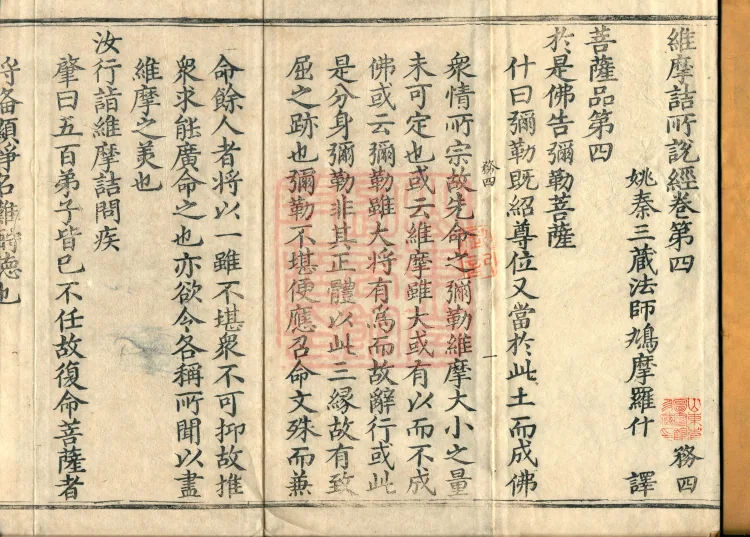 維摩詰所說經卷第四
務四
姚秦三藏法師鳩摩羅什 譯
菩薩品第四
於是佛告彌勒菩薩
什曰彌勒既紹尊位又當於此土而成佛
務四
一
衆情所宗故先命之彌勒維摩大小之量
未可定也或云維摩雖大或有以而不成
佛或云彌勒雖大將有爲而故辭行或此
是分身彌勒非其正體以此三緣故有致
屈之跡也彌勒不堪便應召命文殊而兼
命餘人者將以一雖不堪衆不可抑故推
衆求能廣命之也亦欲令各稱所聞以盡
維摩之美也
汝行詣維摩詰問疾
肇曰五百弟子皆已不任故復命菩薩者
將备顯淨名難酬德也